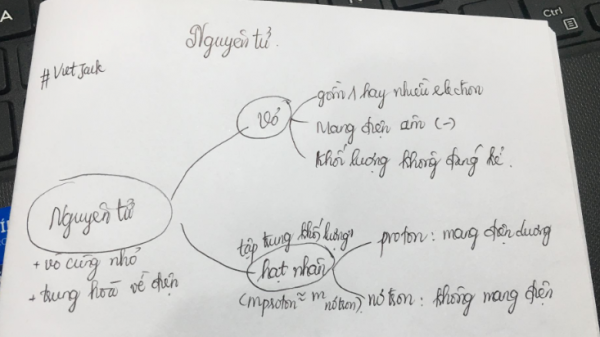 Nguyên tử.
#VietJack
vỏ
gồm 1 hay nhiều electron
Mang điện âm (-)
khối lượng không đáng kể.
Nguyên tử
+ vô cùng nhỏ
+ trung hoà về điện
tập trung khối lượng
hạt nhân
(mproton ≈ m nơtron).
proton: mang điện dương
nơtron: không mang điện
Ctrl
A